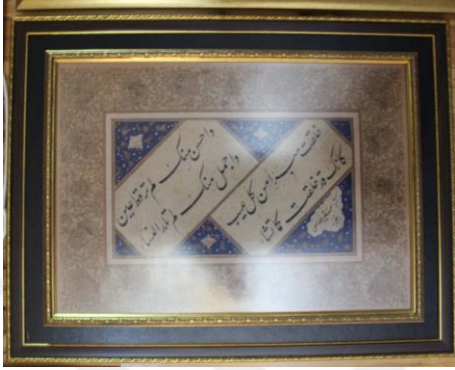 واحسن منک لم ترقط عین
واجمل منک لم تلد النساء
خلقت مبرا من کل عیب
کانک قد خلقت کما تشاء